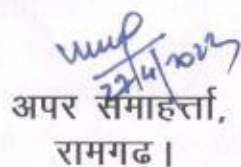 22/4/2023
अपर समाहर्त्ता,
रामगढ।